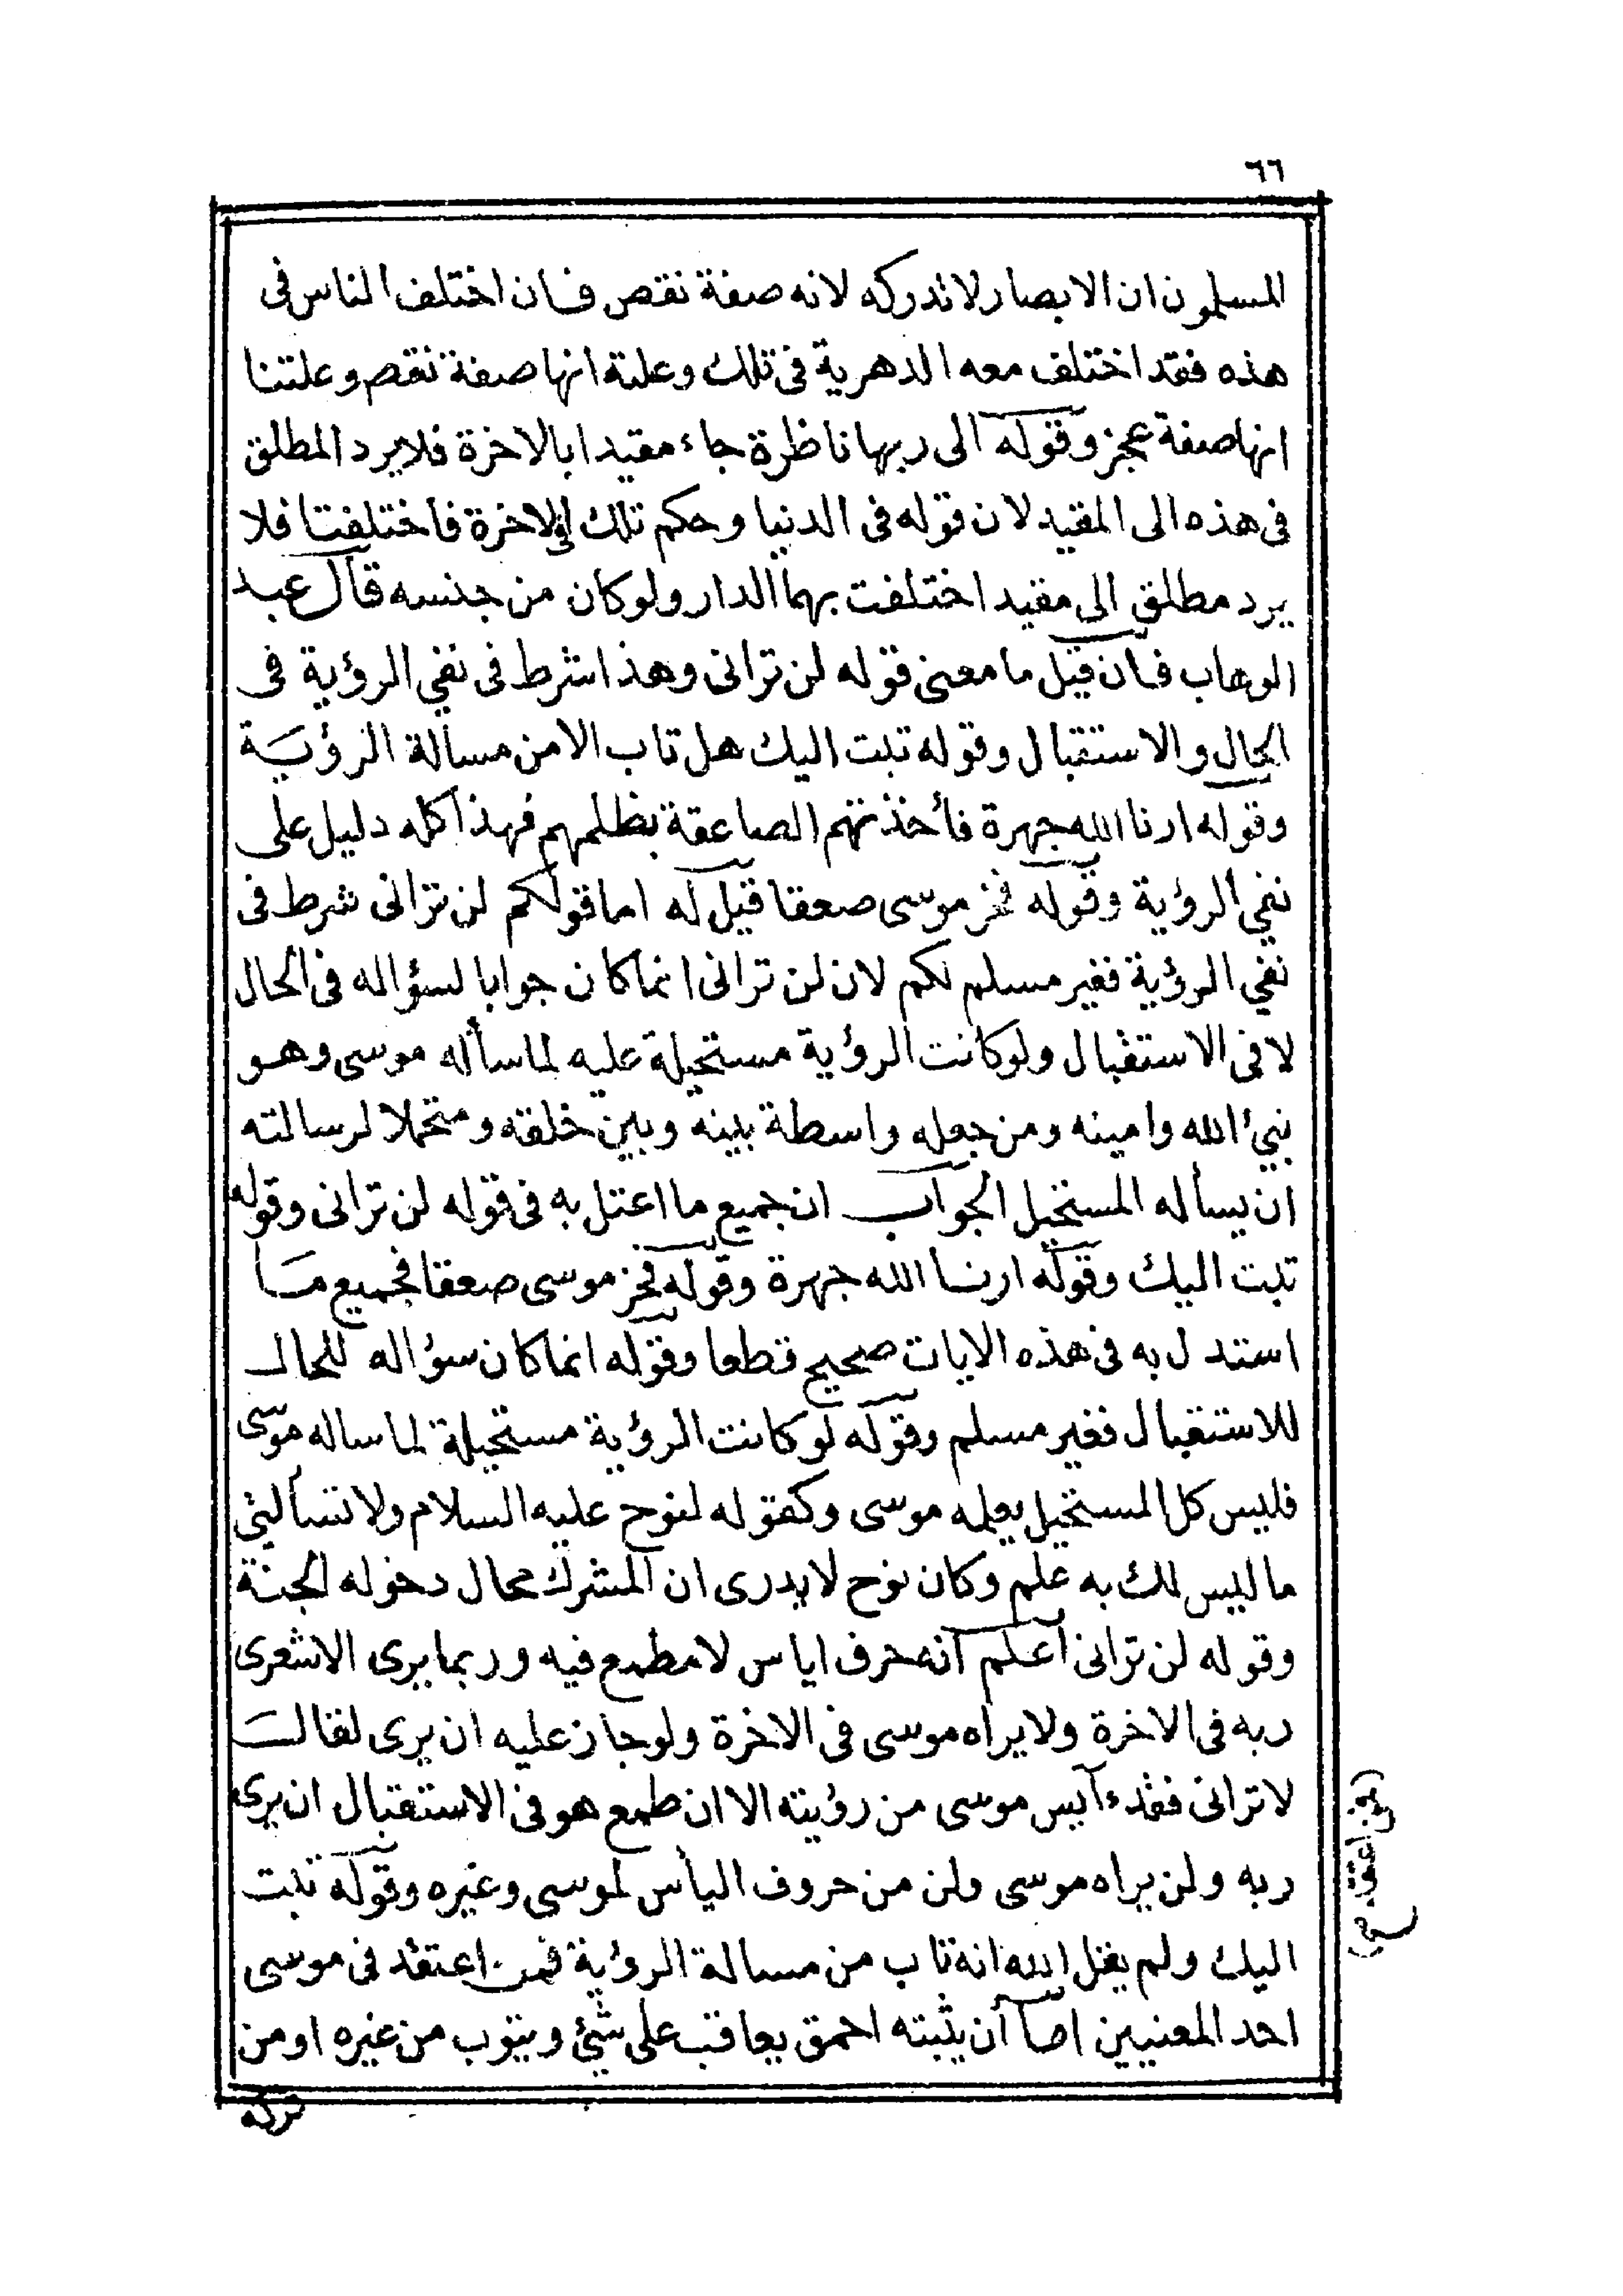 ٦٦
المسلمون ان الابصار لا تدركه لانه صفة نقص فان اختلف الناس فى
هذه فقد اختلف معه الدهرية فى تلك وعلته انها صفة نقص وعلتنا
انها صفة عجز وقوله الى ربها ناظرة جاء مقيدا بالاخرة فلا يرد المطلق
فى هذه الى المقيد لان قوله فى الدنيا وحكم تلك فى الاخرة فاختلفتا فلا
يرد مطلق الى مقيد اختلفت بهما الدار ولو كان من جنسه قال عبد
الوهاب فان قيل ما معنى قوله لن ترانى وهذا شرط فى نفي الرؤية فى
الحال والاستقبال وقوله تبت اليك هل تاب الا من مسألة الرؤية
وقوله ارنا الله جهرة فأخذتهم الصاعقة بظلمهم فهذا كله دليل على
نفي الرؤية وقوله فخر موسى صعقا قيل له اما قولكم لن ترانى شرط فى
نفي الرؤية فغير مسلم لكم لان لن ترانى انما كان جوابا لسؤاله فى الحال
لا فى الاستقبال ولو كانت الرؤية مستحيلة عليه لما سأله موسى وهو
نبيء الله وامينه ومن جعله واسطة بينه وبين خلقه ومتحملا لرسالته
ان يسأله المستحيل الجواب ان جميع ما اعتل به فى قوله لن ترانى وقوله
تبت اليك وقوله ارنا الله جهرة وقوله فخر موسى صعقا فجميع ما
استدل به فى هذه الايات صحيح قطعا وقوله انما كان سؤاله للحال
للاستقبال فغير مسلم وقوله لو كانت الرؤية مستحيلة لما ساله موسى
فليس كل المستحيل يعلمه موسى وكقوله لنوح عليه السلام ولا تسألنى
ما ليس لك به علم وكان نوح لا يدرى ان المشرك محال دخوله الجنة
وقوله لن ترانى أعلم انه حرف اياس لا مطمع فيه وربما يرى الاشعرى
ربه فى الاخرة ولا يراه موسى فى الاخرة ولو جاز عليه ان يرى لقال
لا ترانى فقد ءآيس موسى من رؤيته الا ان طمع هو فى الاستقبال ان يرى
ربه ولن يراه موسى ولن من حروف اليأس لموسى وغيره وقوله تبت
اليك ولم يقل الله انه تاب من مسالة الرؤية فمن اعتقد فى موسى
احد المعنيين اما أن يثبته احمق يعاقب على شئ ويتوب من غيره او من
تركه